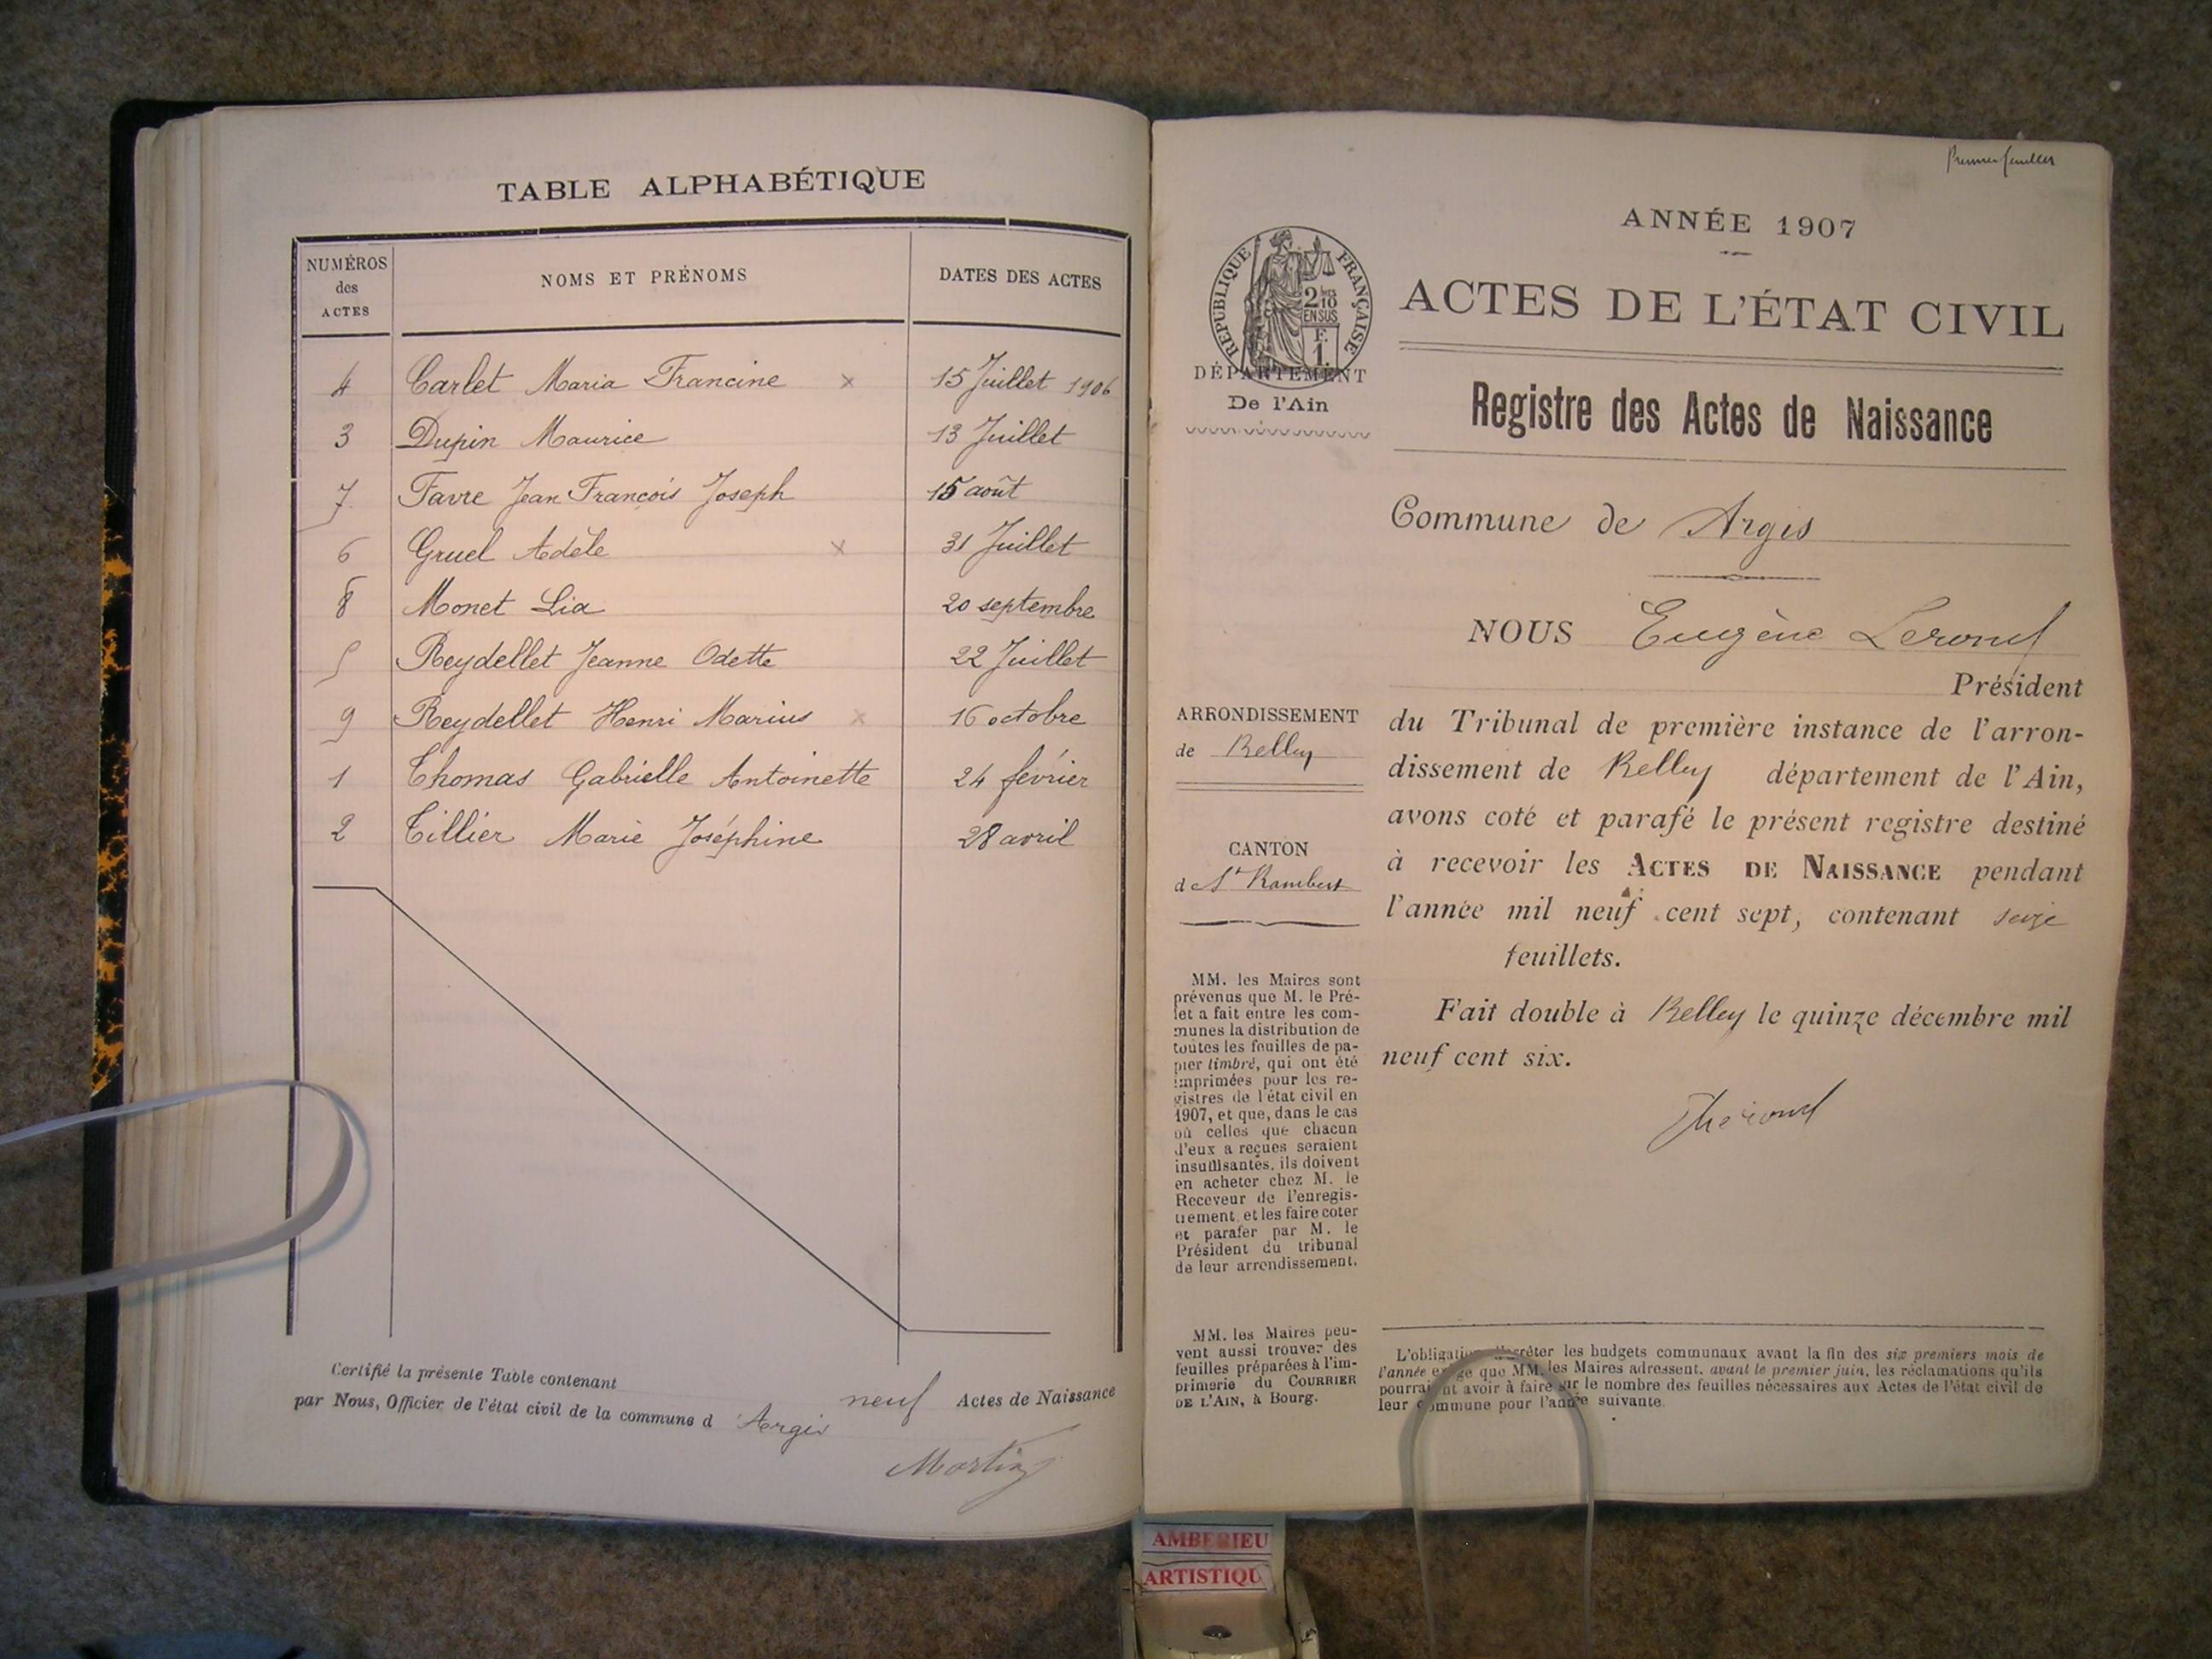 TABLE ALPHABÉTIQUE
NUMÉROS des ACTES NOMS ET PRÉNOMS DATES DES ACTES
4 Carlet Maria Francine x 15 Juillet 1906
3 Dupin Maurice 13 Juillet
7 Favre Jean François Joseph 15 août
6 Gruel Adèle x 31 Juillet
8 Monet Lia 20 septembre
5 Reydellet Jeanne Odette 22 Juillet
9 Reydellet Henri Marius x 16 octobre
1 Thomas Gabrielle Antoinette 24 février
2 Tillier Marie Joséphine 28 avril
Certifié la présente Table contenant neuf Actes de Naissance
par Nous, Officier de l'état civil de la commune d Argis
Martin
Premier feuillet
ANNÉE 1907
RÉPUBLIQUE FRANÇAISE
2/10
EN SUS
F.
1.
DÉPARTEMENT
De l'Ain
ACTES DE L'ÉTAT CIVIL
Registre des Actes de Naissance
Commune de Argis
NOUS Eugène
Président
du Tribunal de première instance de l'arron-
dissement de Belley département de l'Ain,
avons coté et parafé le présent registre destiné
à recevoir les ACTES DE NAISSANCE pendant
l'année mil neuf cent sept, contenant seize
feuillets.
Fait double à Belley le quinze décembre mil
neuf cent six.
ARRONDISSEMENT
de Belley
CANTON
de St Rambert
MM. les Maires sont
prévenus que M. le Pré-
fet a fait entre les com-
munes la distribution de
toutes les feuilles de pa-
pier timbré, qui ont été
imprimées pour les re-
gistres de l'état civil en
1907, et que, dans le cas
où celles que chacun
d'eux a reçues seraient
insuffisantes, ils doivent
en acheter chez M. le
Receveur de l'enregis-
trement, et les faire coter
et parafer par M. le
Président du tribunal
de leur arrondissement.
MM. les Maires peu-
vent aussi trouver des
feuilles préparées à l'im-
primerie du COURRIER
DE L'AIN, à Bourg.
L'obligation d'arrêter les budgets communaux avant la fin des six premiers mois de
l'année exige que MM. les Maires adressent, avant le premier juin, les réclamations qu'ils
pourraient avoir à faire sur le nombre des feuilles nécessaires aux Actes de l'état civil de
leur commune pour l'année suivante.
AMBERIEU
ARTISTIQU